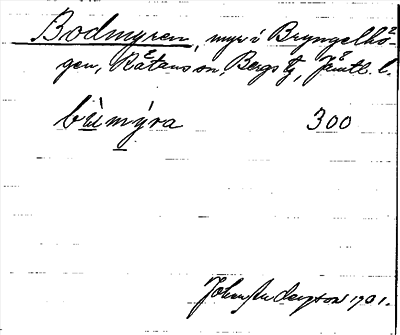 Bodmyren, myr i Bryngelhö-
gen, Rätans sn, Bergs tg, Jämtl. l.
bùmýra 300
Johan Anderzson 1901.